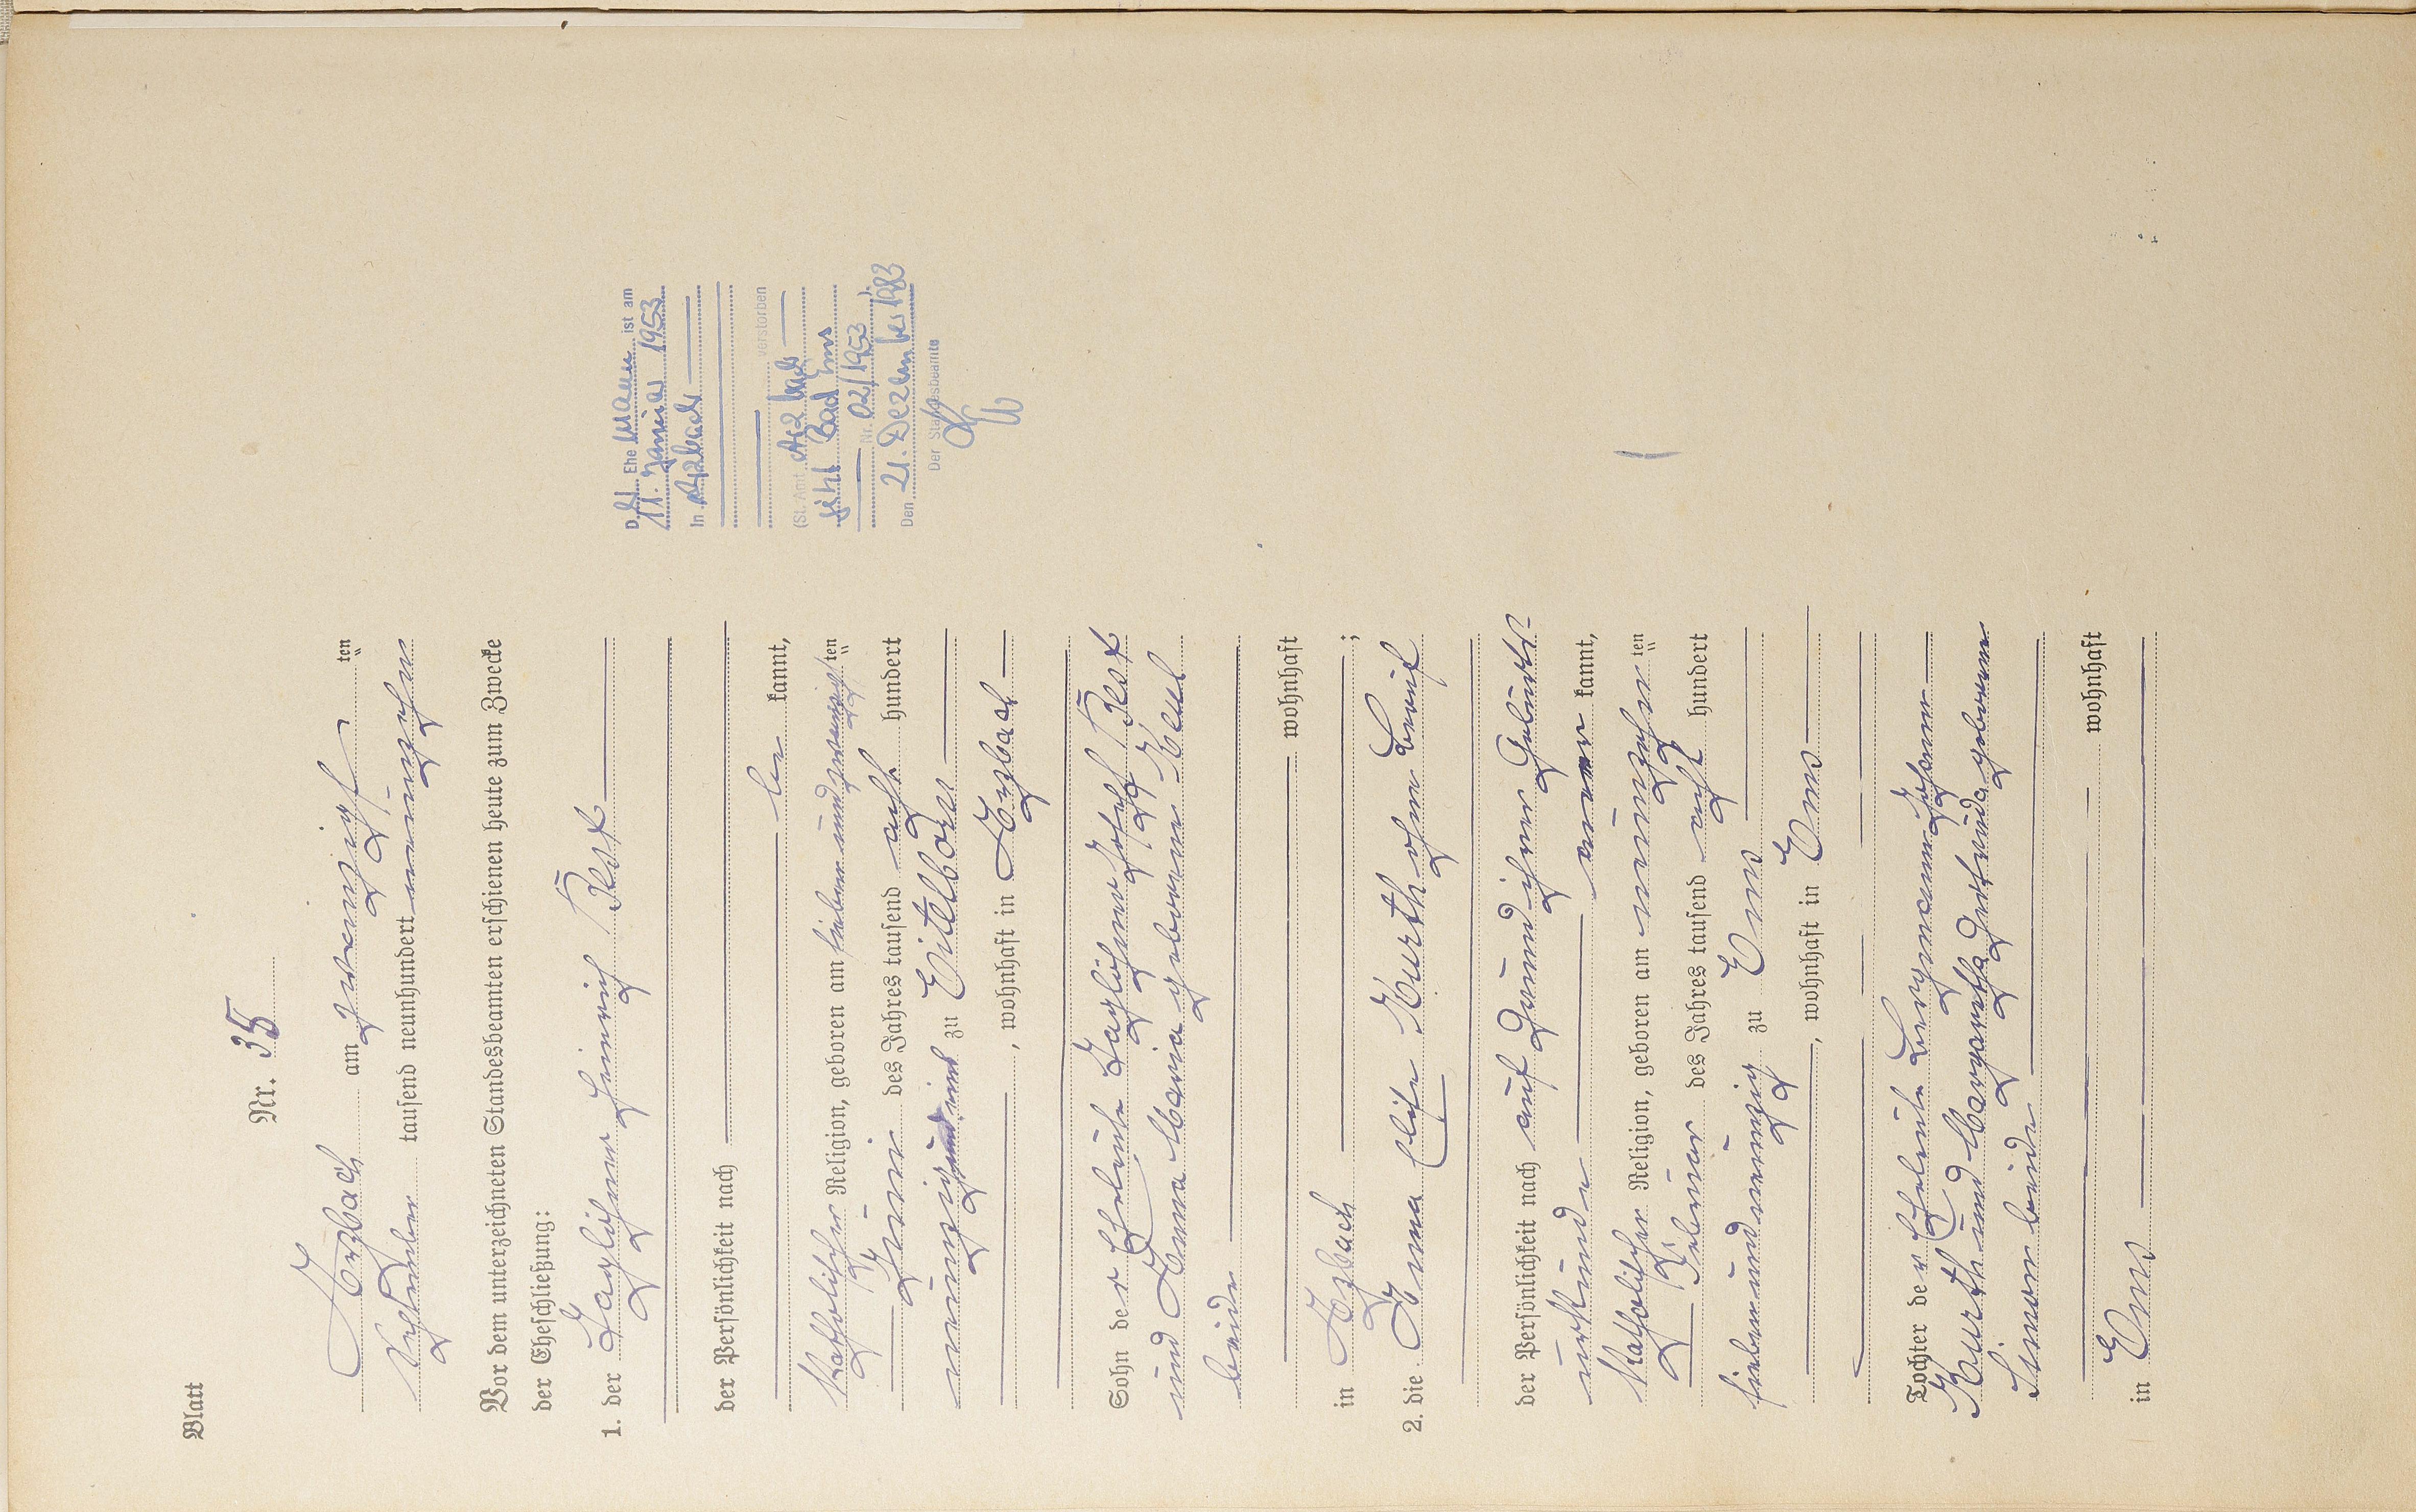 Blatt
Nr. 35
Arzbach am zwanzigsten
September tausend neunhundert neunzehn
Vor dem unterzeichneten Standesbeamten erschienen heute zum Zwecke
der Eheschließung:
1. der Taglöhner Heinrich
der Persönlichkeit nach
be kannt,
katholischer Religion, geboren am siebenundzwanzigsten
Juni des Jahres tausend acht hundert
neunzig und eins zu Eitelborn
, wohnhaft in Arzbach
Sohn der Eheleute Taglöhner Josef
und Anna Maria geborenen Keul
beide
wohnhaft
in Arzbach ;
2. die Anna Elise Kurth ohne Beruf
der Persönlichkeit nach auf Grund ihrer Geburts-
urkunde aner kannt,
katholischer Religion, geboren am neunzehnten
Februar des Jahres tausend acht hundert
siebenundneunzig zu Ems
, wohnhaft in Ems
Tochter der Eheleute Bergmann Johann
Kurth und Margaretha Gertrude geborenen
Simon beide
wohnhaft
in Ems
Der Ehemann ist am
11. Januar 1953
In Arzbach
verstorben
(St. Amt Arzbach
jetzt Bad Ems
Nr. 02/1953 ).
Den 21. Dezember 1983
Der Standesbeamte